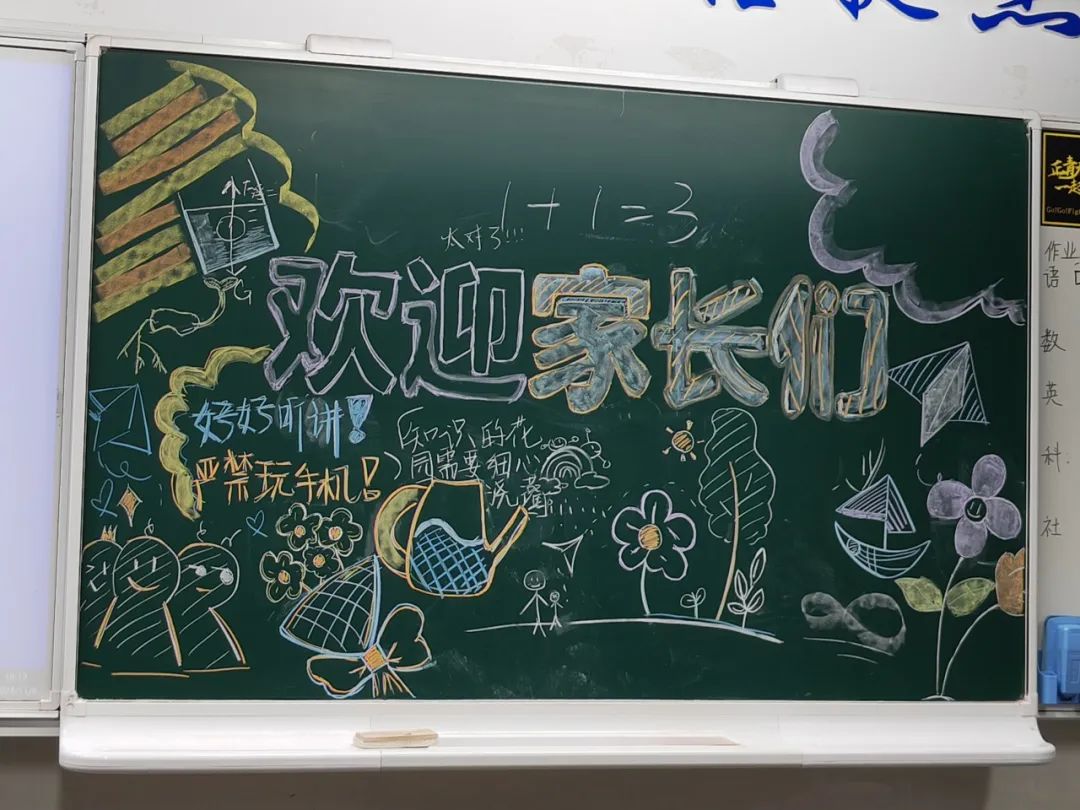 1+1=3
太对了!!!
G
欢迎家长们
好好听讲!
严禁玩手机!
知识的花
园需要细心
浇灌......
Go!Go!Fig
作业
语
数
英
科:
社